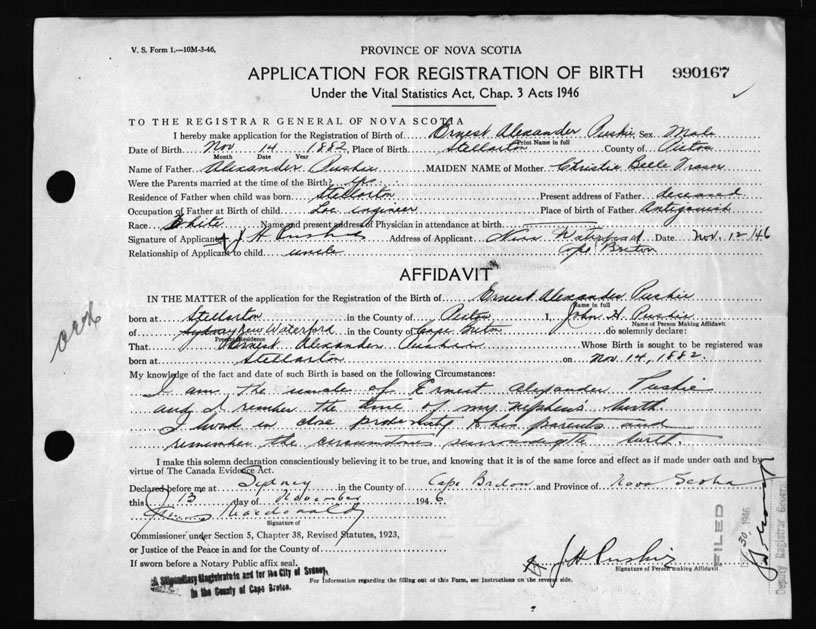 V. S. Form 1.—10M-3-46.
PROVINCE OF NOVA SCOTIA
APPLICATION FOR REGISTRATION OF BIRTH
990167
Under the Vital Statistics Act, Chap. 3 Acts 1946
TO THE REGISTRAR GENERAL OF NOVA SCOTIA
I hereby make application for the Registration of Birth of Ernest Alexander Puskie Sex Male
Print Name in full
Date of Birth Nov 14 1882 Place of Birth Stellarton County of Pictou
Month Date Year
Name of Father Alexander Puskie MAIDEN NAME of Mother Christie Belle Fraser
Were the Parents married at the time of the Birth? yes
Residence of Father when child was born Stellarton Present address of Father deceased
Occupation of Father at Birth of child Loc engineer Place of birth of Father Antigonish
Race White Name and present address of Physician in attendance at birth
Signature of Applicant J H Puskie Address of Applicant New Waterford Date Nov. 12/46
Relationship of Applicant to child uncle Cape Breton
AFFIDAVIT
IN THE MATTER of the application for the Registration of Birth of Ernest Alexander Puskie
Name in full
born at Stellarton in the County of Pictou I, John H. Puskie
Name of Person Making Affidavit
of Sydney New Waterford in the County of Cape Breton do solemnly declare:
Present Residence
That Ernest Alexander Puskie Whose Birth is sought to be registered was
born at Stellarton on Nov. 14, 1882.
My knowledge of the fact and date of such Birth is based on the following Circumstances:
I am the uncle of Ernest Alexander Puskie
and I remember the time of my nephew's birth.
I lived in close proximity to his parents and
remember the circumstances surrounding the birth.
I make this solemn declaration conscientiously believing it to be true, and knowing that it is of the same force and effect as if made under oath and by
virtue of The Canada Evidence Act.
Declared before me at Sydney in the County of Cape Breton and Province of Nova Scotia
this 13 day of November 1946
Macdonald
Signature of
Commissioner under Section 5, Chapter 38, Revised Statutes, 1923,
or Justice of the Peace in and for the County of
If sworn before a Notary Public affix seal.
J H Puskie
Signature of Person making Affidavit
A Stipendiary Magistrate in and for the City of Sydney,
in the County of Cape Breton.
For Information regarding the filling out of this Form, see Instructions on the reverse side.
FILED
30 1946
Deputy Registrar General